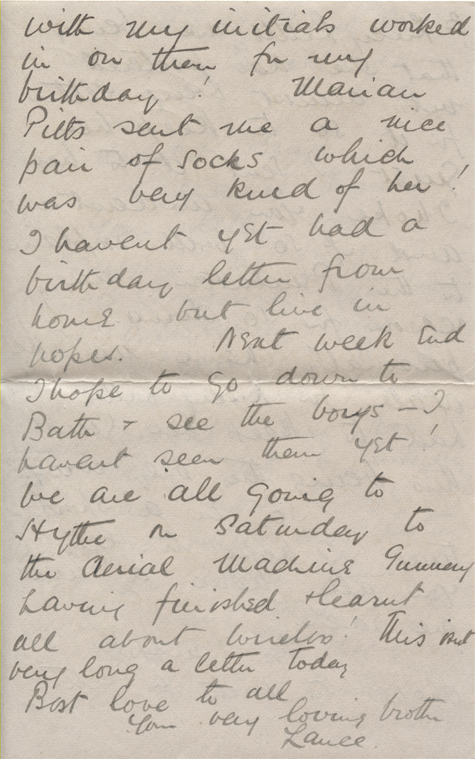 with my initials worked
in on them for my
birthday! Marian
Pitts sent me a nice
pair of socks which
was very kind of her!
I havent yet had a
birthday letter from
home but live in
hopes. Next week End
I hope to go down to
Bath & see the boys - I
havent seen them yet!
We are all going to
Hythe on Saturday to
the Aerial Machine Gunnery
having finished & learnt
all about wireless! This isnt
very long a letter today
Best love to all
Your very loving brother
Lance.